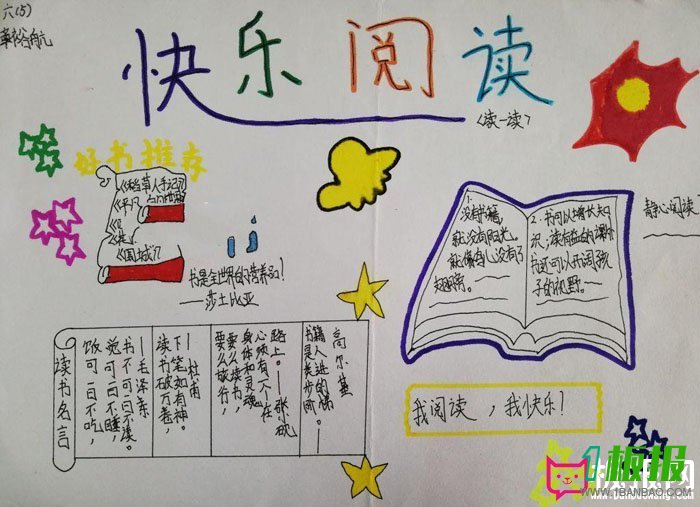 六(5)
快乐阅读
《读一读》
好书推荐
《稻草人手记》
《围城》
书是全世界的营养品！
——莎士比亚
读书名言
饭可一日不吃，
觉可一日不睡，
书不可一日不读。
—毛泽东
读书破万卷，
下笔如有神。
—杜甫
要么旅行，
要么读书，
身体和灵魂
必须有一个在
路上。
书籍是
人类进步
的阶梯。
高尔基
1.
没有书籍，
就没有阳光，
就像鸟儿没有了
翅膀。
2.书可以增长知
识，读有益的课外
书还可以开阔孩
子的视野。
静心阅读
我阅读，我快乐！
1板报
WWW.1BANBAO.COM